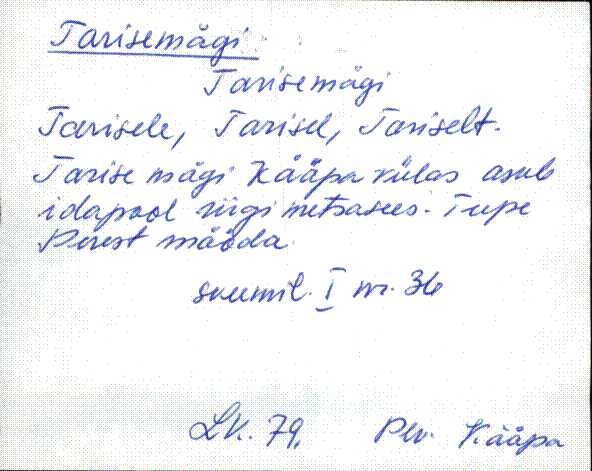 Tarisemägi
Tarisemägi
Tarisele, Tarisel, Tariselt.
Tarise mägi Kääpa külas asub
idapool riigi metsasees. Tupe
Perest mööda.
skeemil. I nr. 36
Lk. 79, Plv. Kääpa